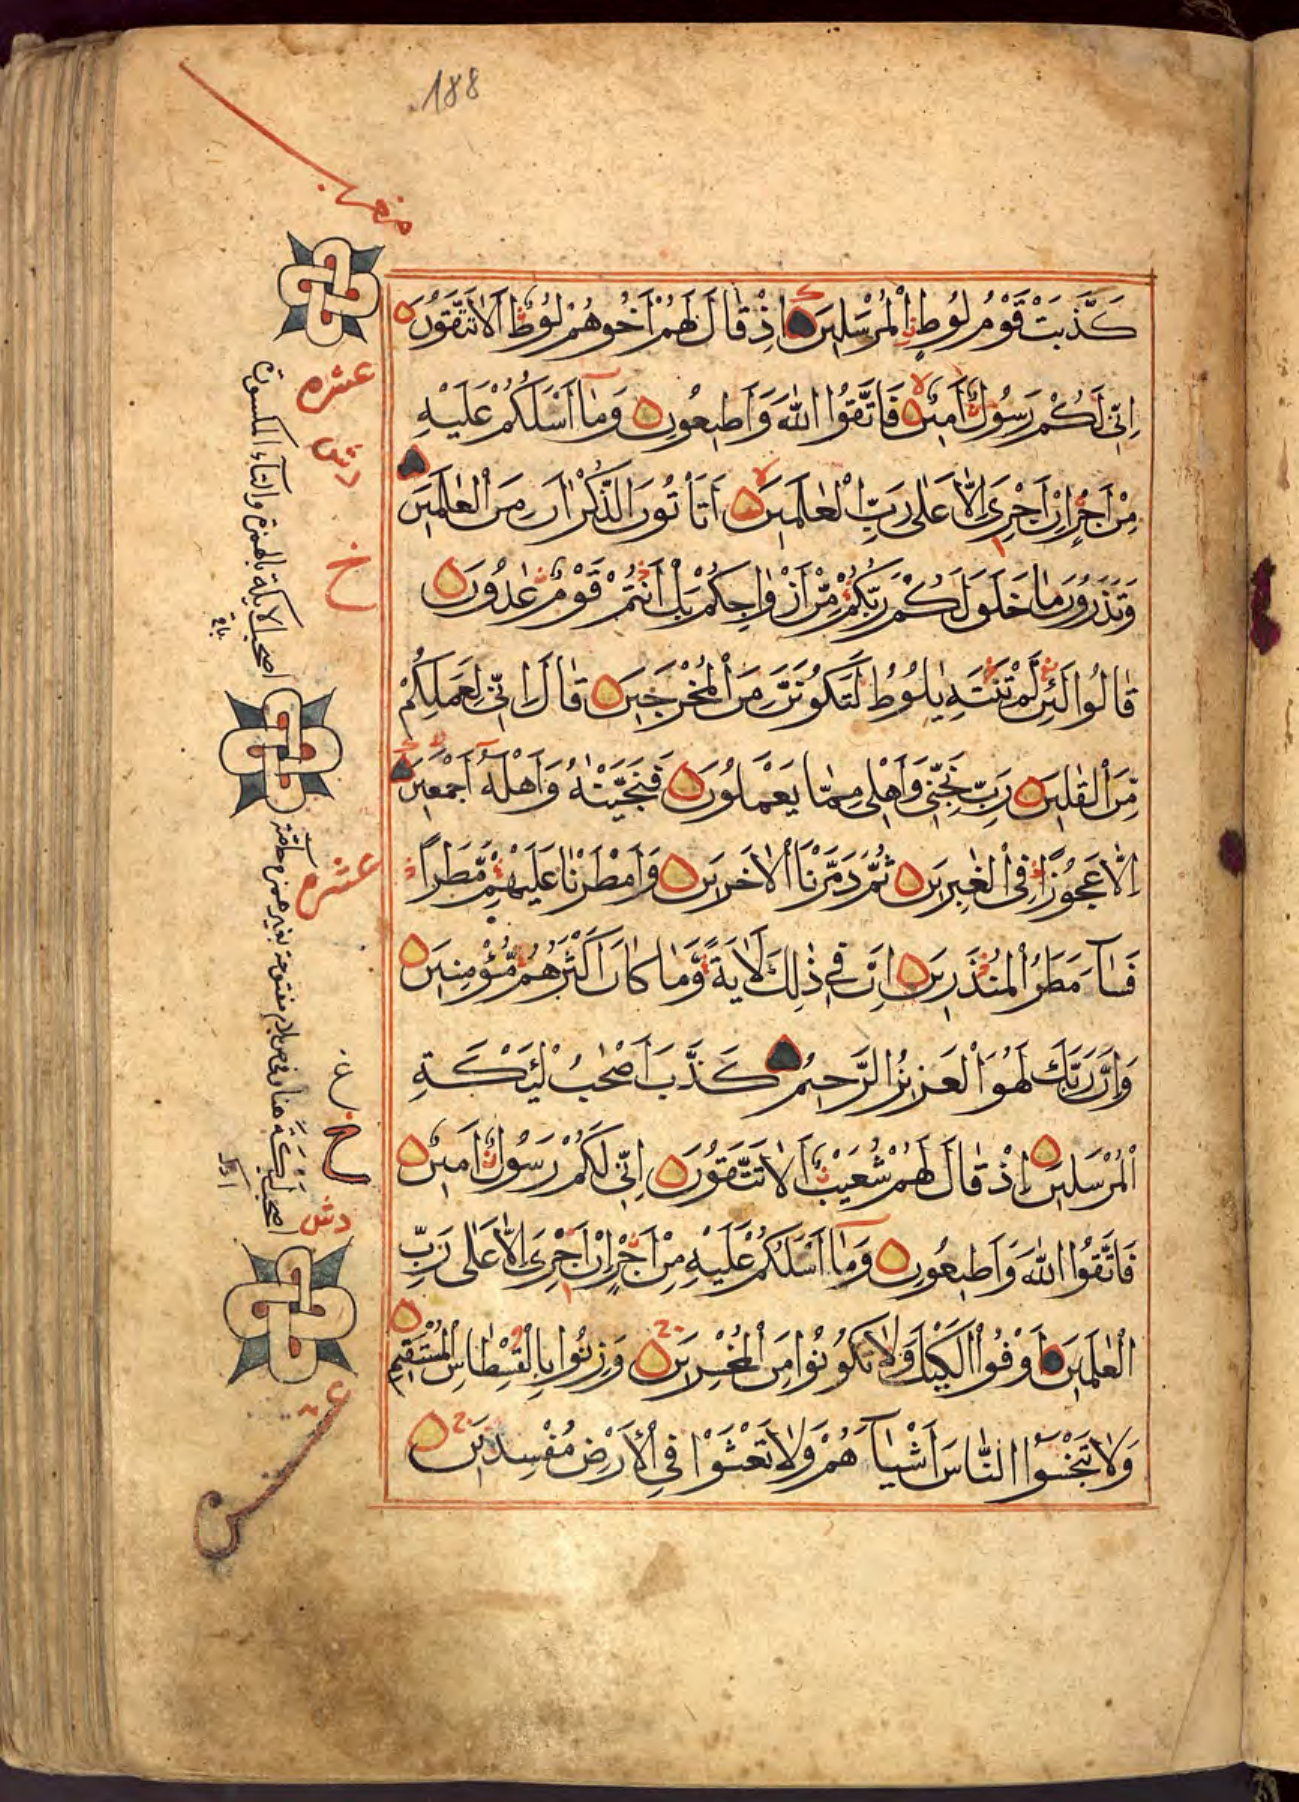 188
كَذَّبَتْ قَوْمُ لُوطٍ الْمُرْسَلِينَ اِذْ قَالَ لَهُمْ اَخُوهُمْ لُوطٌ اَلَا تَتَّقُونَ
اِنِّي لَكُمْ رَسُولٌ اَمِينٌ فَاتَّقُوا اللّٰهَ وَاَطِيعُونِ وَمَا اَسْـَٔلُكُمْ عَلَيْهِ
مِنْ اَجْرٍ اِنْ اَجْرِيَ اِلَّا عَلٰى رَبِّ الْعٰلَمِينَ اَتَاْتُونَ الذُّكْرَانَ مِنَ الْعٰلَمِينَ
وَتَذَرُونَ مَا خَلَقَ لَكُمْ رَبُّكُمْ مِّنْ اَزْوَاجِكُمْ بَلْ اَنْتُمْ قَوْمٌ عٰدُونَ
قَالُوا لَئِنْ لَّمْ تَنْتَهِ يٰلُوطُ لَتَكُونَنَّ مِنَ الْمُخْرَجِينَ قَالَ اِنِّي لِعَمَلِكُمْ
مِّنَ الْقٰلِينَ رَبِّ نَجِّنِي وَاَهْلِي مِمَّا يَعْمَلُونَ فَنَجَّيْنٰهُ وَاَهْلَهٗ اَجْمَعِينَ
اِلَّا عَجُوزًا فِي الْغٰبِرِينَ ثُمَّ دَمَّرْنَا الْاٰخَرِينَ وَاَمْطَرْنَا عَلَيْهِمْ مَّطَرًا
فَسَآءَ مَطَرُ الْمُنْذَرِينَ اِنَّ فِي ذٰلِكَ لَاٰيَةً وَّمَا كَانَ اَكْثَرُهُمْ مُّؤْمِنِينَ
وَاِنَّ رَبَّكَ لَهُوَ الْعَزِيزُ الرَّحِيمُ كَذَّبَ اَصْحٰبُ لْـَٔيْكَةِ
الْمُرْسَلِينَ اِذْ قَالَ لَهُمْ شُعَيْبٌ اَلَا تَتَّقُونَ اِنِّي لَكُمْ رَسُولٌ اَمِينٌ
فَاتَّقُوا اللّٰهَ وَاَطِيعُونِ وَمَا اَسْـَٔلُكُمْ عَلَيْهِ مِنْ اَجْرٍ اِنْ اَجْرِيَ اِلَّا عَلٰى رَبِّ
الْعٰلَمِينَ اَوْفُوا الْكَيْلَ وَلَا تَكُونُوا مِنَ الْمُخْسِرِينَ وَزِنُوا بِالْقِسْطَاسِ الْمُسْتَقِيمِ
وَلَا تَبْخَسُوا النَّاسَ اَشْيَآءَهُمْ وَلَا تَعْثَوْا فِي الْاَرْضِ مُفْسِدِينَ
عشره
دش
خ
اصحب الايكة بالهمزة والتاء المكسورة
عشره
ع
خ
دش